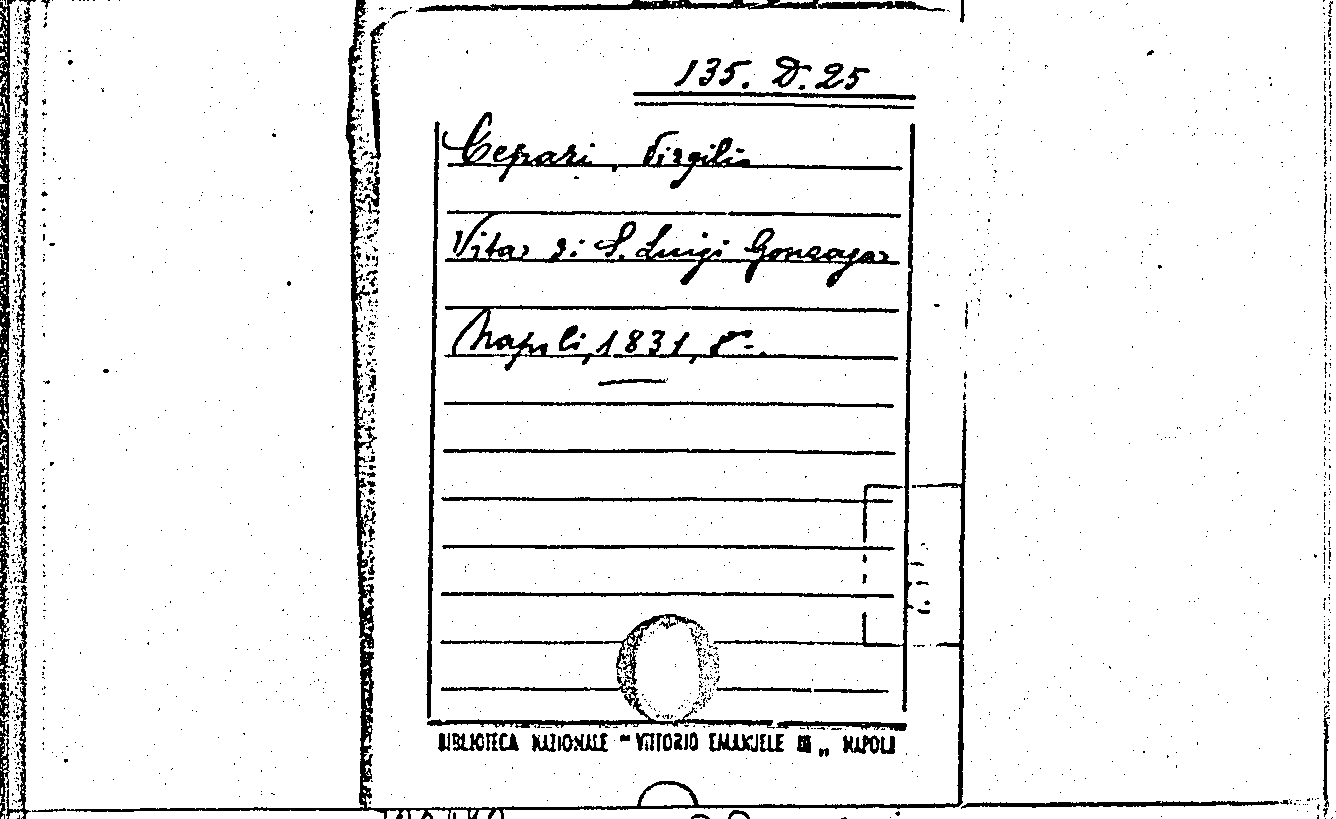 135. D. 25
Cepari, Virgilio
Vita di S. Luigi Gonzaga
Napoli, 1831, 8°.
BIBLIOTECA NAZIONALE "VITTORIO EMANUELE III„ NAPOLI